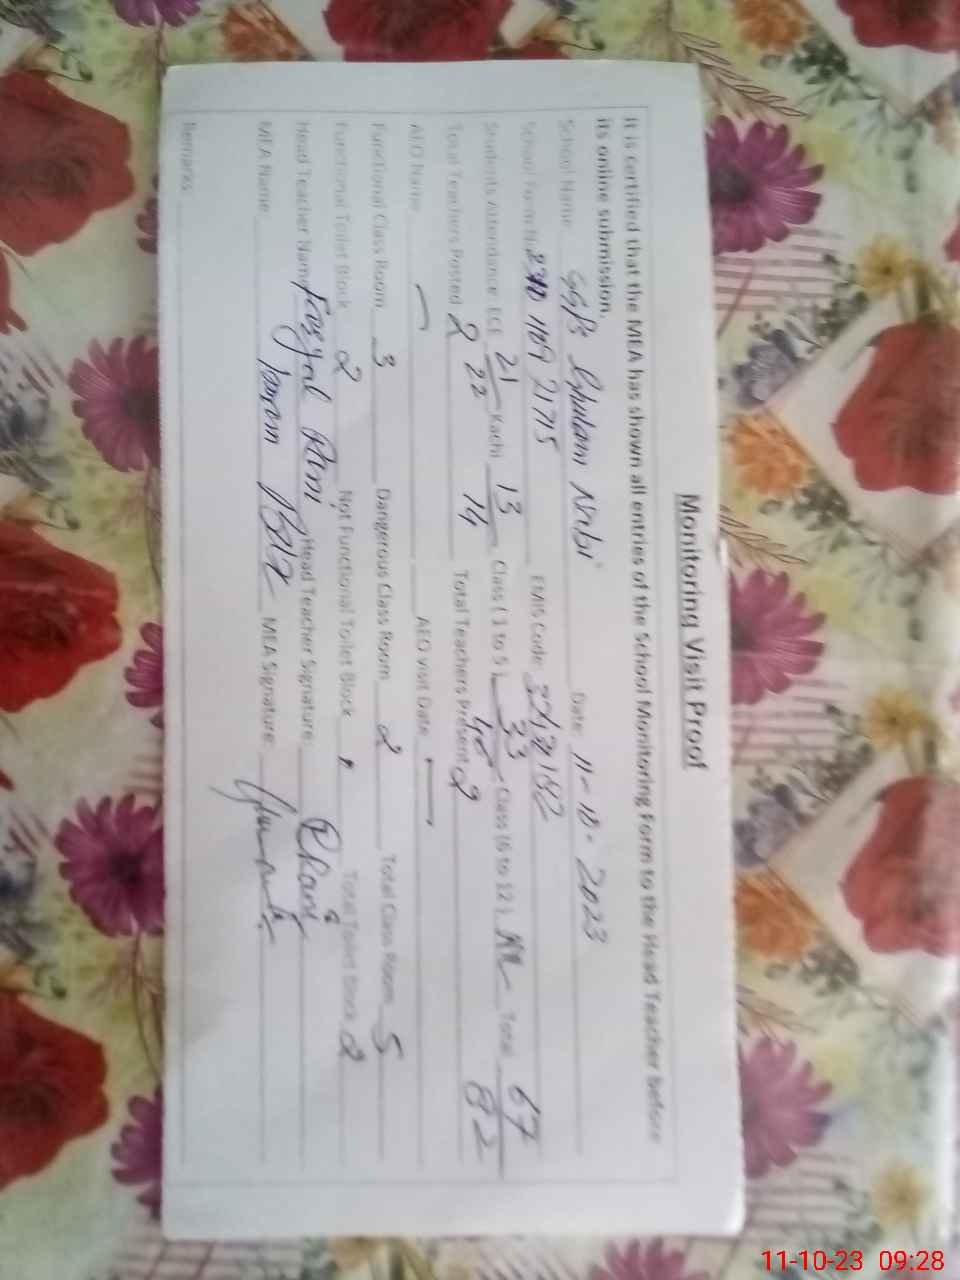 Monitoring Visit Proof
It is certified that the MEA has shown all entries of the School Monitoring Form to the Head Teacher before
its online submission.
School Name: GGPS Ghulam Nabi Date: 11-10-2023
School Form N EMIS Code:
Students Attendance: ECE 21/22 Kachi 13/14 Class (1 to 5) 33/ Class (6 to 12) Total 67/82
Total Teachers Posted 2 Total Teachers Present 2
AEO Name — AEO visit Date —
Functional Class Room 3 Dangerous Class Room 2 Total Class Room 5
Functional Toilet Block 2 Not Functional Toilet Block Total Toilet Block 2
Head Teacher Name Head Teacher Signature:
MEA Name: MEA Signature:
Remarks:
11-10-23 09:28